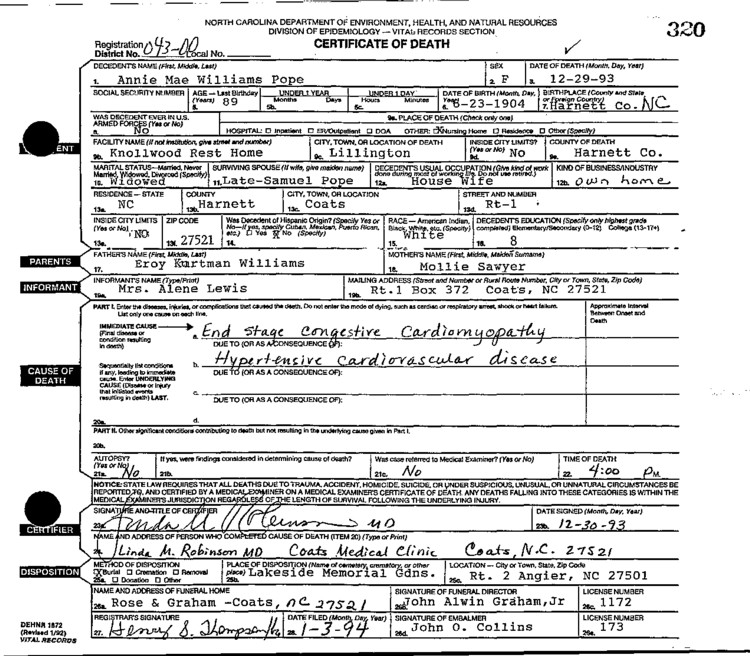 NORTH CAROLINA DEPARTMENT OF ENVIRONMENT, HEALTH, AND NATURAL RESOURCES
DIVISION OF EPIDEMIOLOGY — VITAL RECORDS SECTION
CERTIFICATE OF DEATH
320
Registration District No. 043-00 Local No.
DECEDENT'S NAME (First, Middle, Last) SEX DATE OF DEATH (Month, Day, Year)
1. Annie Mae Williams Pope 2. F 3. 12-29-93
SOCIAL SECURITY NUMBER AGE — Last Birthday (Years) UNDER 1 YEAR UNDER 1 DAY DATE OF BIRTH (Month, Day, Year) BIRTHPLACE (County and State or Foreign Country)
89 5b. Months Days 5c. Hours Minutes 6. -23-1904 7. Harnett Co. NC
WAS DECEDENT EVER IN U.S. ARMED FORCES (Yes or No) 9a. PLACE OF DEATH (Check only one)
8. No HOSPITAL: Inpatient ER/Outpatient DOA OTHER: X Nursing Home Residence Other (Specify)
FACILITY NAME (If not institution, give street and number) CITY, TOWN, OR LOCATION OF DEATH INSIDE CITY LIMITS? (Yes or No) COUNTY OF DEATH
ENT
9b. Knollwood Rest Home 9c. Lillington 9d. No 9e. Harnett Co.
MARITAL STATUS—Married, Never Married, Widowed, Divorced (Specify) SURVIVING SPOUSE (If wife, give maiden name) DECEDENT'S USUAL OCCUPATION (Give kind of work done during most of working life. Do not use retired.) KIND OF BUSINESS/INDUSTRY
10. Widowed 11. Late-Samuel Pope 12a. House Wife 12b. own home
RESIDENCE — STATE COUNTY CITY, TOWN, OR LOCATION STREET AND NUMBER
NC 13b. Harnett 13c. Coats 13d. Rt-1
INSIDE CITY LIMITS (Yes or No) ZIP CODE Was Decedent of Hispanic Origin? (Specify Yes or No—If yes, specify Cuban, Mexican, Puerto Rican, etc.) Yes X No (Specify) RACE — American Indian, Black, White, etc. (Specify) DECEDENT'S EDUCATION (Specify only highest grade completed) Elementary/Secondary (0-12) College (13-17+)
13e. NO 13f. 27521 14. 15. White 16. 8
PARENTS
FATHER'S NAME (First, Middle, Last) MOTHER'S NAME (First, Middle, Maiden Surname)
17. Eroy Kurtman Williams 18. Mollie Sawyer
INFORMANT
INFORMANT'S NAME (Type/Print) MAILING ADDRESS (Street and Number or Rural Route Number, City or Town, State, Zip Code)
19a. Mrs. Alene Lewis 19b. Rt.1 Box 372 Coats, NC 27521
PART I. Enter the diseases, injuries, or complications that caused the death. Do not enter the mode of dying, such as cardiac or respiratory arrest, shock or heart failure. List only one cause on each line. Approximate Interval Between Onset and Death
IMMEDIATE CAUSE (Final disease or condition resulting in death) a. End stage congestive Cardiomyopathy
DUE TO (OR AS A CONSEQUENCE OF):
b. Hypertensive cardiovascular disease
CAUSE OF DEATH
Sequentially list conditions if any, leading to immediate cause. Enter UNDERLYING CAUSE (Disease or injury that initiated events resulting in death) LAST.
DUE TO (OR AS A CONSEQUENCE OF):
c.
DUE TO (OR AS A CONSEQUENCE OF):
20a. d.
PART II. Other significant conditions contributing to death but not resulting in the underlying cause given in Part I.
20b.
AUTOPSY? (Yes or No) If yes, were findings considered in determining cause of death? Was case referred to Medical Examiner? (Yes or No) TIME OF DEATH
21a. No 21b. 21c. No 22. 4:00 PM
NOTICE: STATE LAW REQUIRES THAT ALL DEATHS DUE TO TRAUMA, ACCIDENT, HOMICIDE, SUICIDE, OR UNDER SUSPICIOUS, UNUSUAL, OR UNNATURAL CIRCUMSTANCES BE
REPORTED TO, AND CERTIFIED BY A MEDICAL EXAMINER ON A MEDICAL EXAMINER'S CERTIFICATE OF DEATH. ANY DEATHS FALLING INTO THESE CATEGORIES IS WITHIN THE
MEDICAL EXAMINER'S JURISDICTION REGARDLESS OF THE LENGTH OF SURVIVAL FOLLOWING THE UNDERLYING INJURY.
CERTIFIER
SIGNATURE AND TITLE OF CERTIFIER DATE SIGNED (Month, Day, Year)
23a. Linda M. Robinson MD 23b. 12-30-93
NAME AND ADDRESS OF PERSON WHO COMPLETED CAUSE OF DEATH (ITEM 20) (Type or Print)
24. Linda M. Robinson MD Coats Medical Clinic Coats, N.C. 27521
DISPOSITION
METHOD OF DISPOSITION PLACE OF DISPOSITION (Name of cemetery, crematory, or other place) LOCATION — City or Town, State, Zip Code
X Burial Cremation Removal 25a. Donation Other 25b. Lakeside Memorial Gdns. 25c. Rt. 2 Angier, NC 27501
NAME AND ADDRESS OF FUNERAL HOME SIGNATURE OF FUNERAL DIRECTOR LICENSE NUMBER
26a. Rose & Graham -Coats, NC 27521 26b. John Alwin Graham, Jr 26c. 1172
REGISTRAR'S SIGNATURE DATE FILED (Month, Day, Year) SIGNATURE OF EMBALMER LICENSE NUMBER
27. Henry S. Thompson 28. 1-3-94 26d. John O. Collins 26e. 173
DEHNR 1872
(Revised 1/92)
VITAL RECORDS